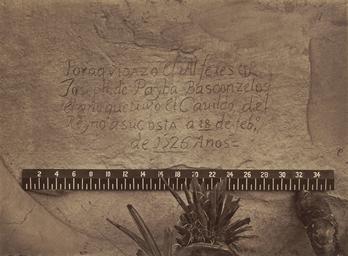 Por aqui pazo el Alferes Dn
Joseph de Payba Basconzelos
el año que tuvo el Cavildo del
Reyno a su costa a 18 de feb°
de 1726 Años=
2 4 6 8 10 12 14 16 18 20 22 24 26 28 30 32 34